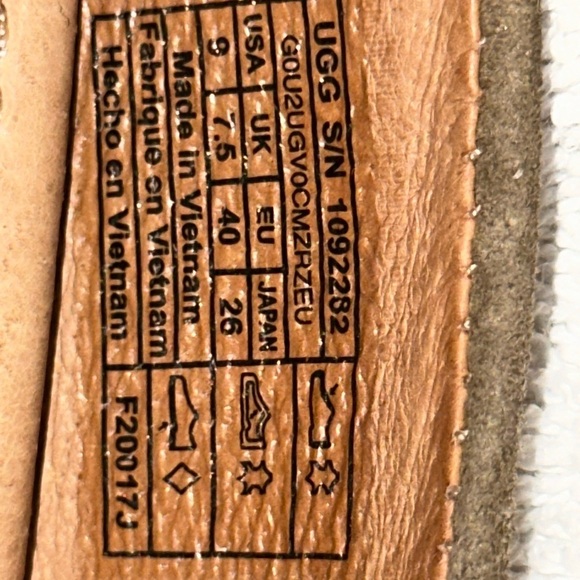 UGG S/N 1092282
G0U2UGV0CMZRZEU
USA UK EU JAPAN
9 7.5 40 26
Made in Vietnam
Fabrique en Vietnam
Hecho en Vietnam
F20017J